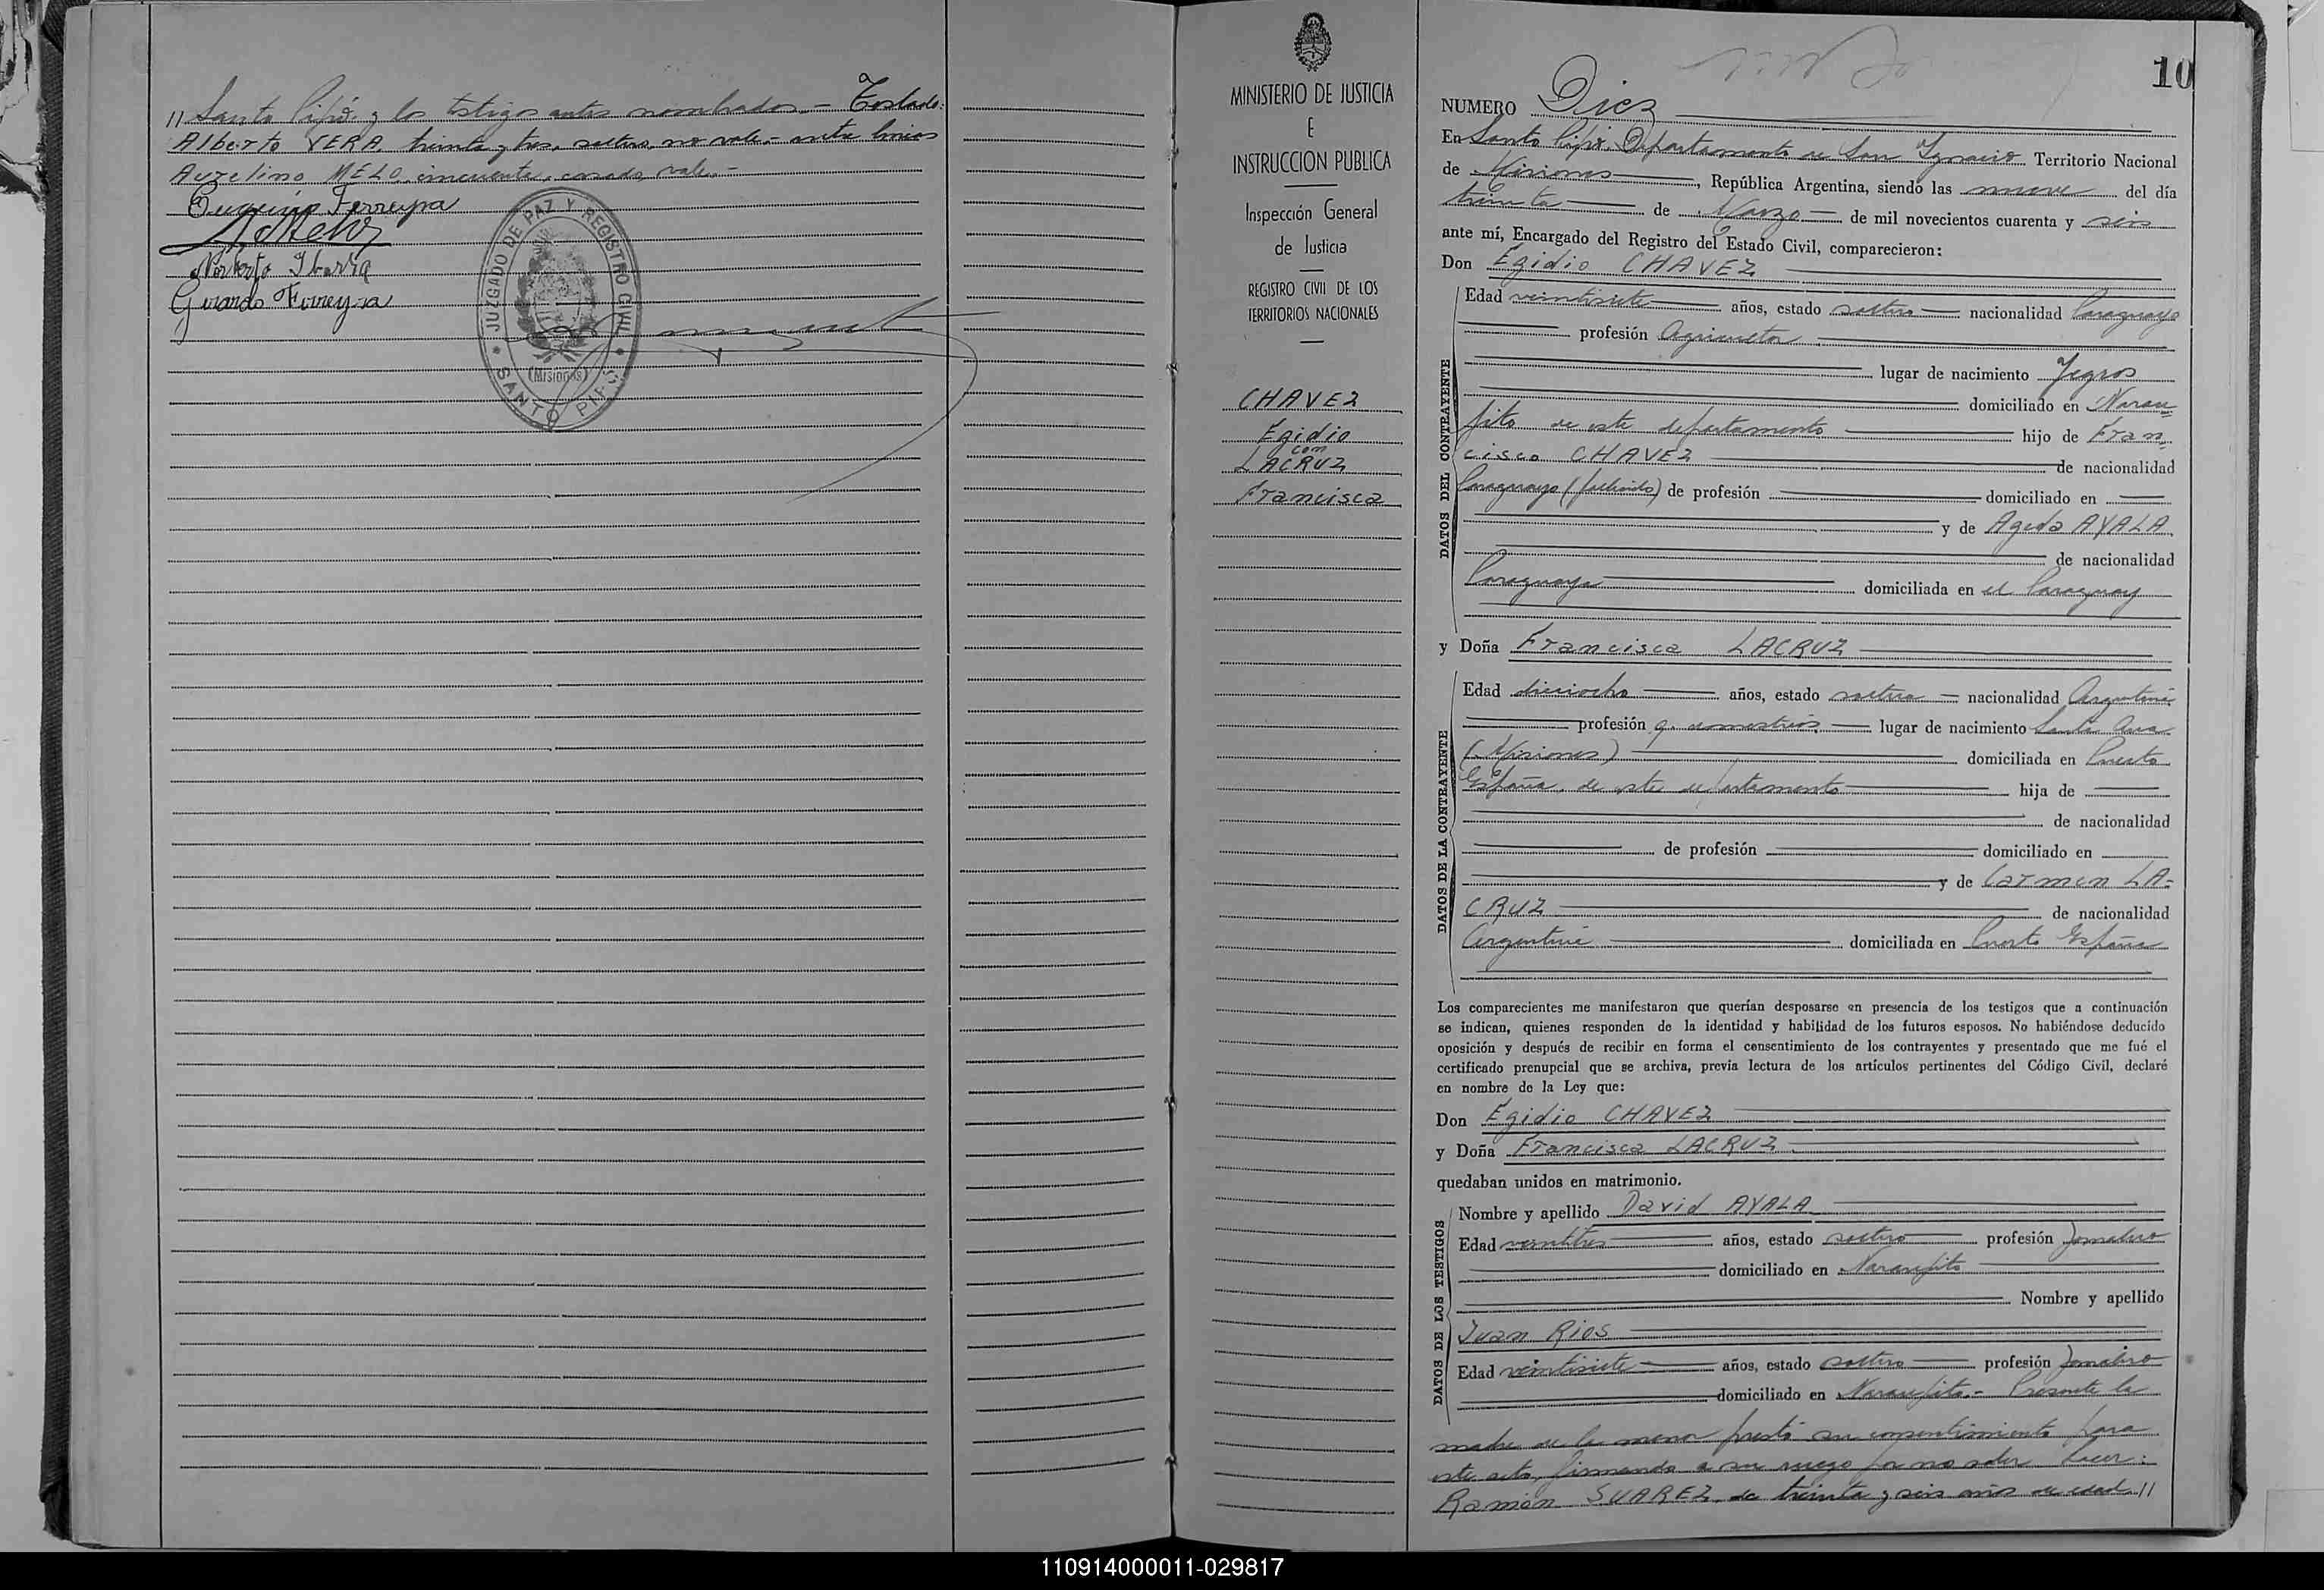 // Santo Pipó y los testigos antes nombrados.- Testado:
Alberto VERA, treinta y tres, soltero, no vale.- entre lineas
Aurelino MELO, cincuenta, casado, vale.-
Eugenio Ferreyra
Norberto Ibarra
Gerardo Ferreyra
JUZGADO DE PAZ Y REGISTRO CIVIL
(Misiones)
SANTO PIPÓ
MINISTERIO DE JUSTICIA
E
INSTRUCCION PUBLICA
Inspección General
de Justicia
REGISTRO CIVIL DE LOS
TERRITORIOS NACIONALES
CHAVEZ
Egidio
con
LACRUZ
Francisca
10
NUMERO Diez
En Santo Pipó, Departamento de San Ignacio Territorio Nacional
de Misiones, República Argentina, siendo las nueve del día
treinta de Marzo de mil novecientos cuarenta y seis
ante mí, Encargado del Registro del Estado Civil, comparecieron:
Don Egidio CHAVEZ
DATOS DEL CONTRAYENTE
Edad veintisiete años, estado soltero nacionalidad Paraguayo
profesión Agricultor
lugar de nacimiento Yegros
domiciliado en Naran=
jito de este departamento hijo de Fran=
cisco CHAVEZ de nacionalidad
Paraguayo (fallecido) de profesión domiciliado en
y de Ageda AYALA
de nacionalidad
Paraguaya domiciliada en el Paraguay
y Doña Francisca LACRUZ
DATOS DE LA CONTRAYENTE
Edad dieciocho años, estado soltera nacionalidad Argentina
profesión q. domésticos lugar de nacimiento Santa Ana
(Misiones) domiciliada en Puerto
España, de este departamento hija de
de nacionalidad
de profesión domiciliado en
y de Carmen LA=
CRUZ de nacionalidad
Argentina domiciliada en Puerto España
Los comparecientes me manifestaron que querían desposarse en presencia de los testigos que a continuación
se indican, quienes responden de la identidad y habilidad de los futuros esposos. No habiéndose deducido
oposición y después de recibir en forma el consentimiento de los contrayentes y presentado que me fué el
certificado prenupcial que se archiva, previa lectura de los artículos pertinentes del Código Civil, declaré
en nombre de la Ley que:
Don Egidio CHAVEZ
y Doña Francisca LACRUZ
quedaban unidos en matrimonio.
DATOS DE LOS TESTIGOS
Nombre y apellido David AYALA
Edad veintitres años, estado soltero profesión Jornalero
domiciliado en Naranjito
Nombre y apellido
Juan Rios
Edad veintisiete años, estado soltero profesión Jornalero
domiciliado en Naranjito.- Presente la
madre de la menor prestó su consentimiento para
este acto, firmando a su ruego por no saber hacer:
Ramón SUAREZ, de treinta y seis años de edad //
110914000011-029817